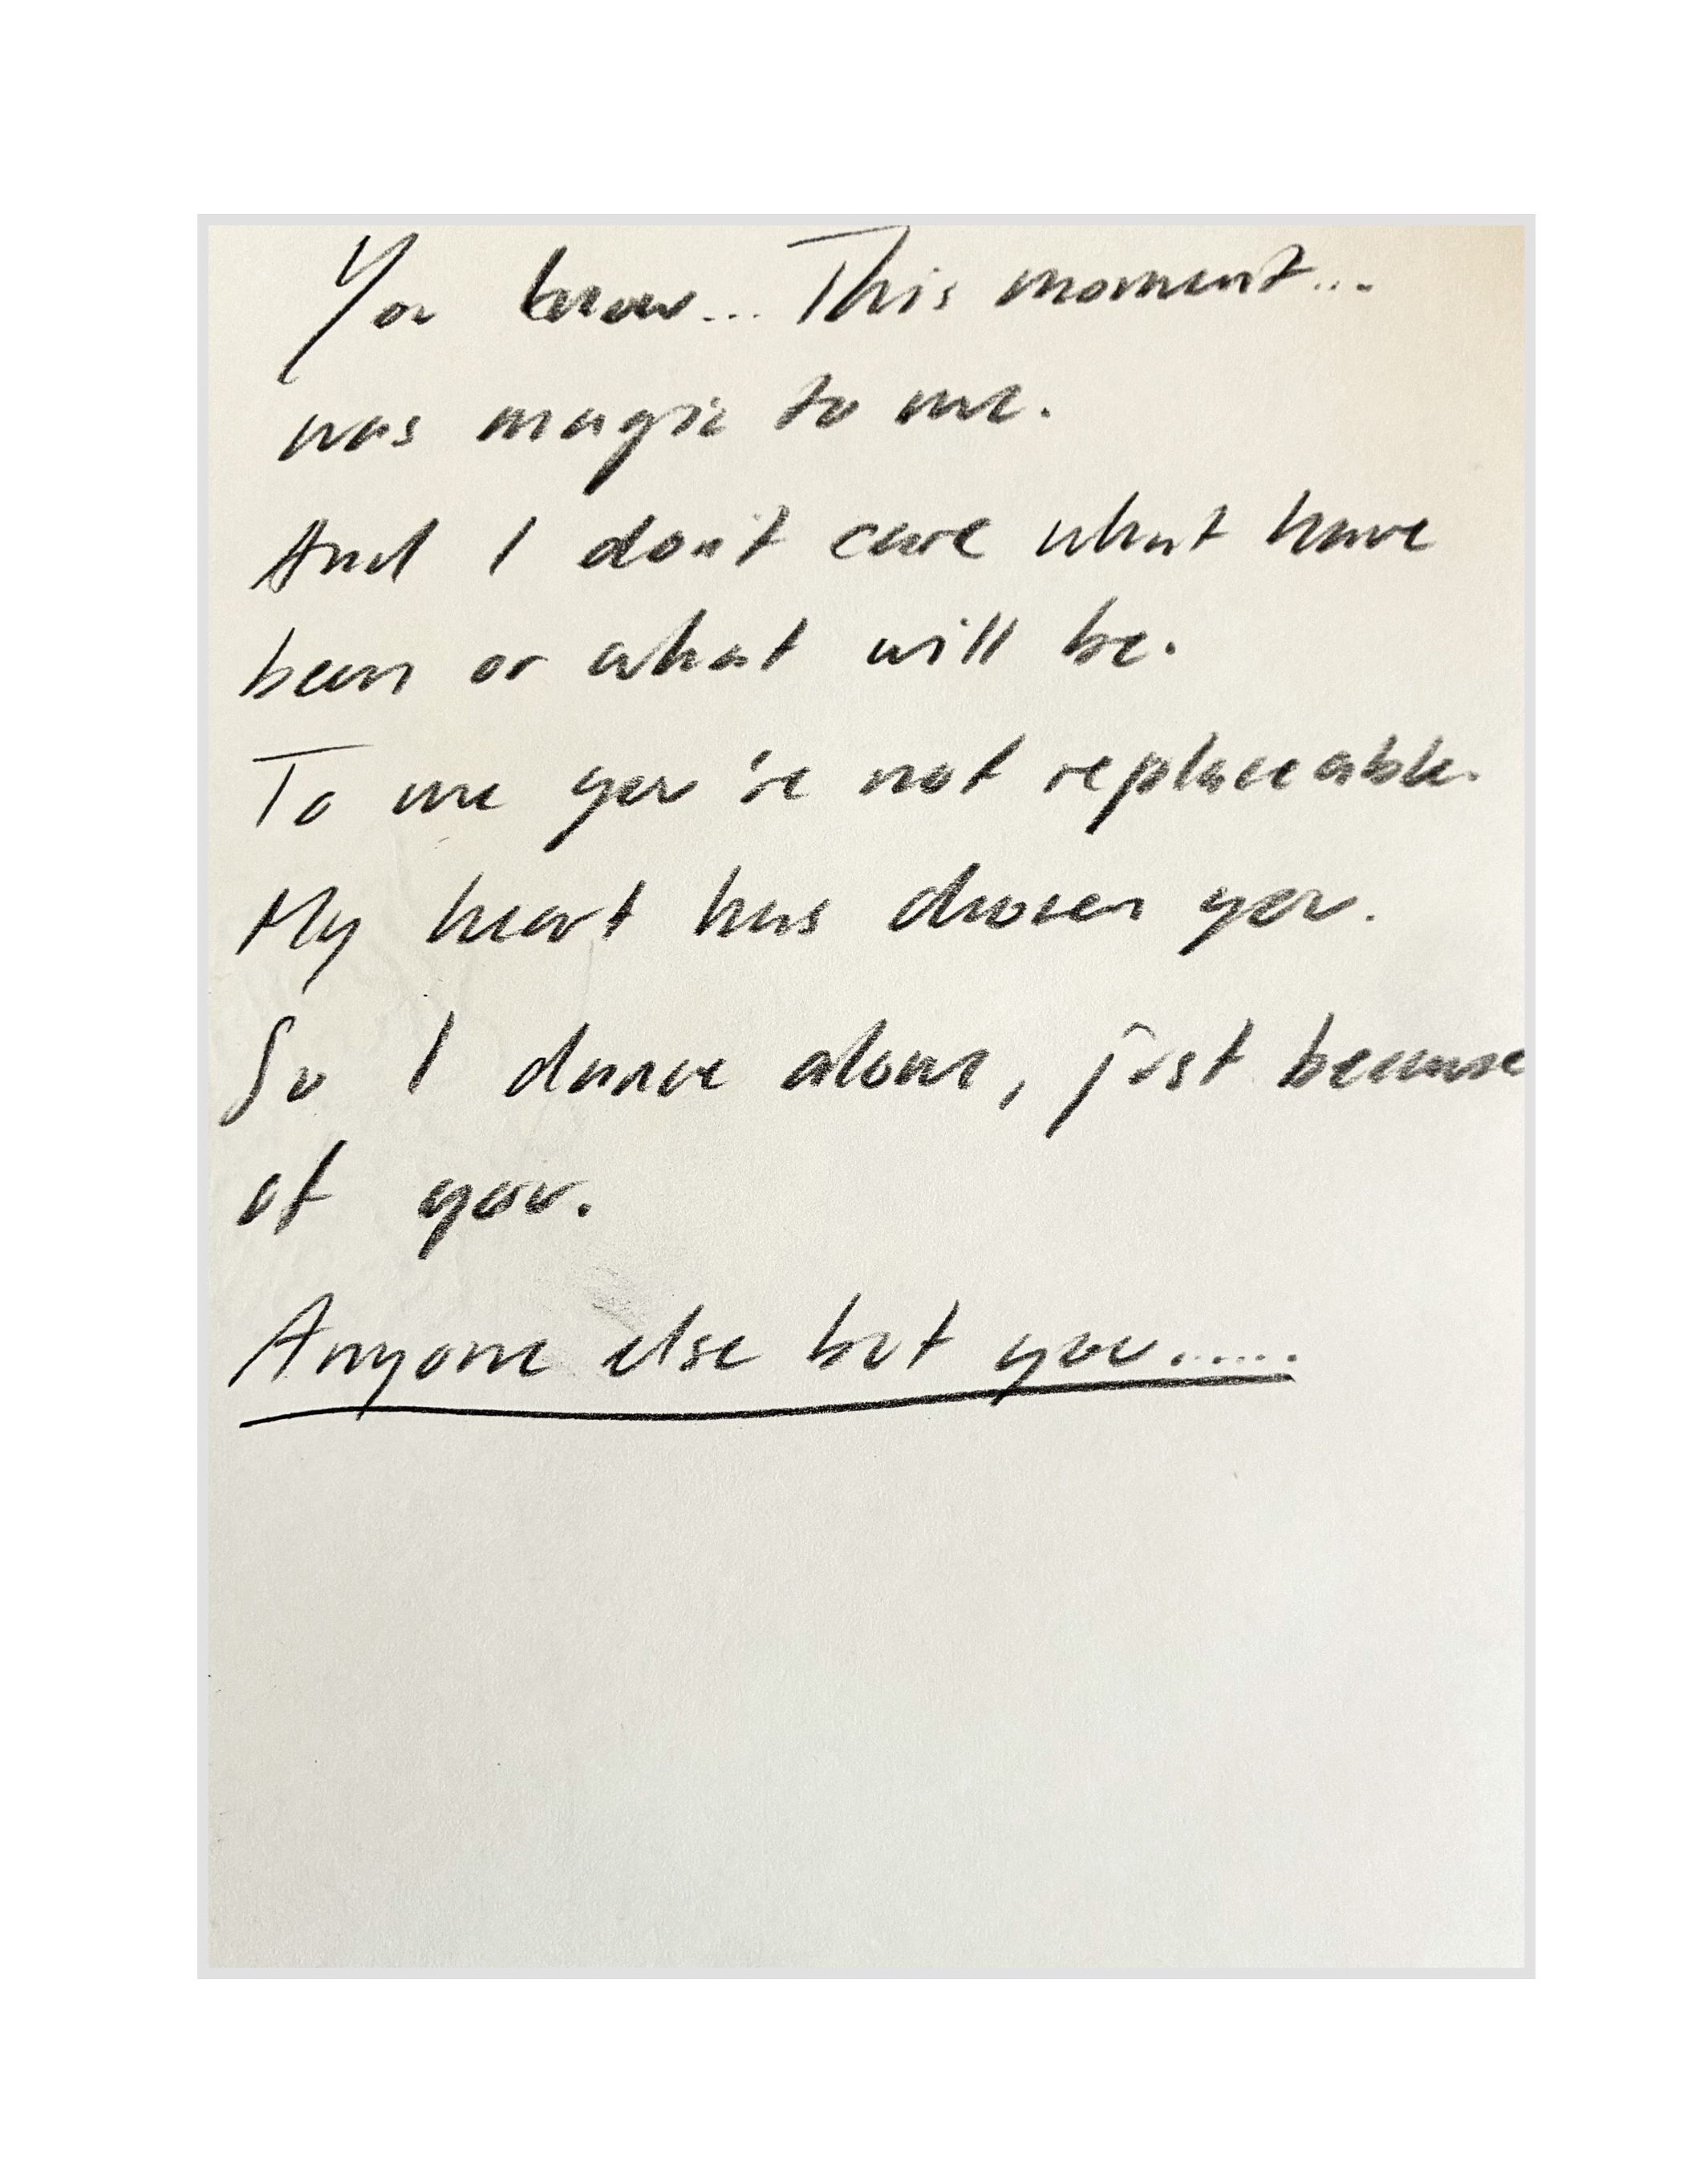 You know... This moment...
was magic to me.
And I don't care what have
been or what will be.
To me you're not replaceable.
My heart has chosen you.
So I dance alone, just because
of you.
Anyone else but you......